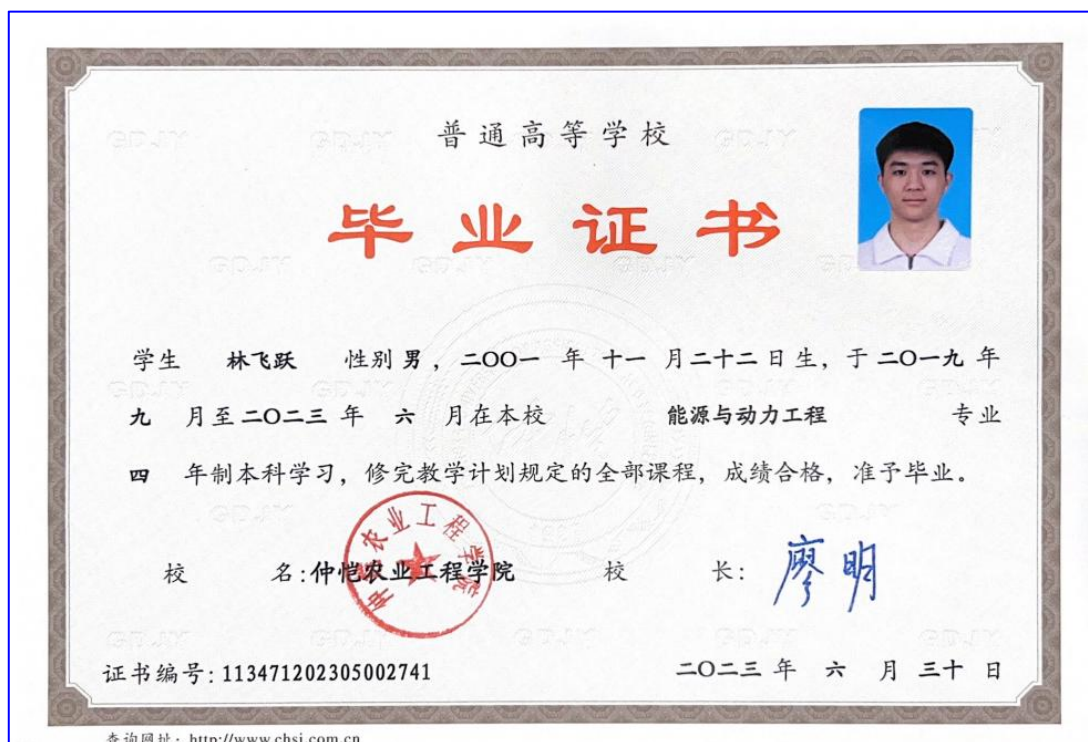 普通高等学校
毕业证书
学生 林飞跃 性别 男，二〇〇一 年 十一 月二十二日生，于二〇一九 年
九 月至二〇二三 年 六 月在本校 能源与动力工程 专业
四 年制本科学习，修完教学计划规定的全部课程，成绩合格，准予毕业。
仲恺农业工程学院
校 名：仲恺农业工程学院 校 长：廖明
证书编号：113471202305002741 二〇二三 年 六 月 三十 日
查询网址：http://www.chsi.com.cn
GDJY